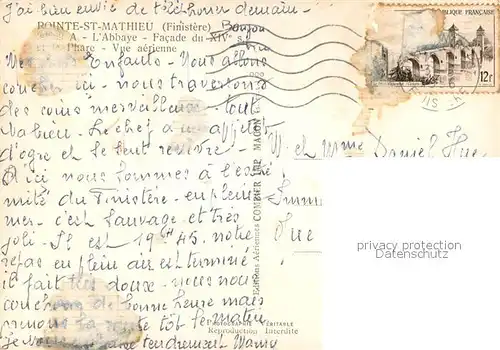 J'ai bien envie de téléphoner demain -
POINTE-ST-MATHIEU (Finistère) Bonjour
A. - L'Abbaye - Façade du XIVe s.
et le Phare - Vue aérienne
RÉPUBLIQUE FRANÇAISE
12F
Enfants - Nous allons
coucher ici - nous traversons
des coins merveilleux - tout
va bien - Le chef a un appétit
d'ogre et se sent revivre -
M et Mme Daniel
D'ici nous sommes à l'extré
mité du Finistère - en pleine
mer - c'est sauvage et très
joli - Il est 19h45. notre
repas en plein air est terminé
il fait très doux - nous nous
couchons de bonne heure mais
prenons la route tôt le matin
tendrement Mamy
Editions Aériennes COMBIER IMP. MACON
PHOTOGRAPHIE VÉRITABLE
Reproduction Interdite
Rue
privacy protection
Datenschutz